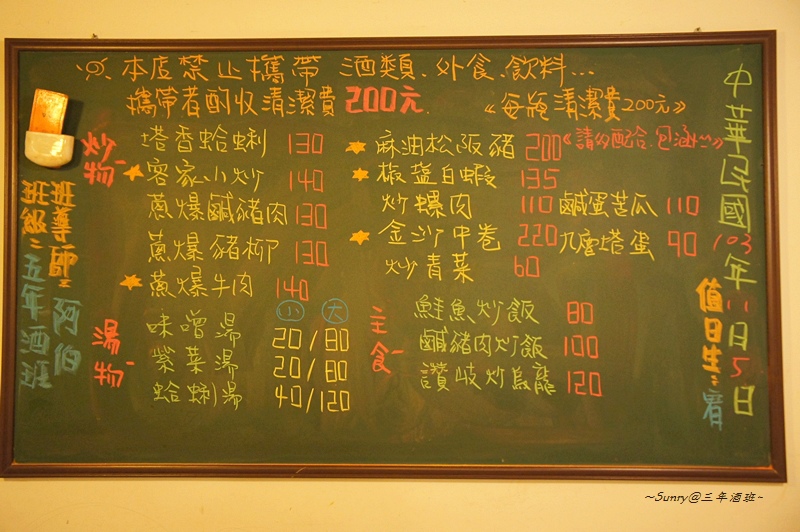 ※本店禁止攜帶 酒類、外食、飲料...
攜帶者酌收清潔費200元. 《每瓶清潔費200元》
《請多配合、包涵^^》
炒物
塔香蛤蜊 130
★客家小炒 140
蔥爆鹹豬肉 130
蔥爆豬柳 130
★蔥爆牛肉 140
★麻油松阪豬 200
★椒鹽白蝦 135
炒螺肉 110
★金沙中卷 220
炒青菜 60
鹹蛋苦瓜 110
九層塔蛋 90
湯物
小 大
味噌湯 20/80
紫菜湯 20/80
蛤蜊湯 40/120
主食
鮭魚炒飯 80
鹹豬肉炒飯 100
讚岐炒烏龍 120
中華民國103年11日5日
值日生:宥
班導師:阿伯
班級:五年酒班
~Sunry@三年酒班~